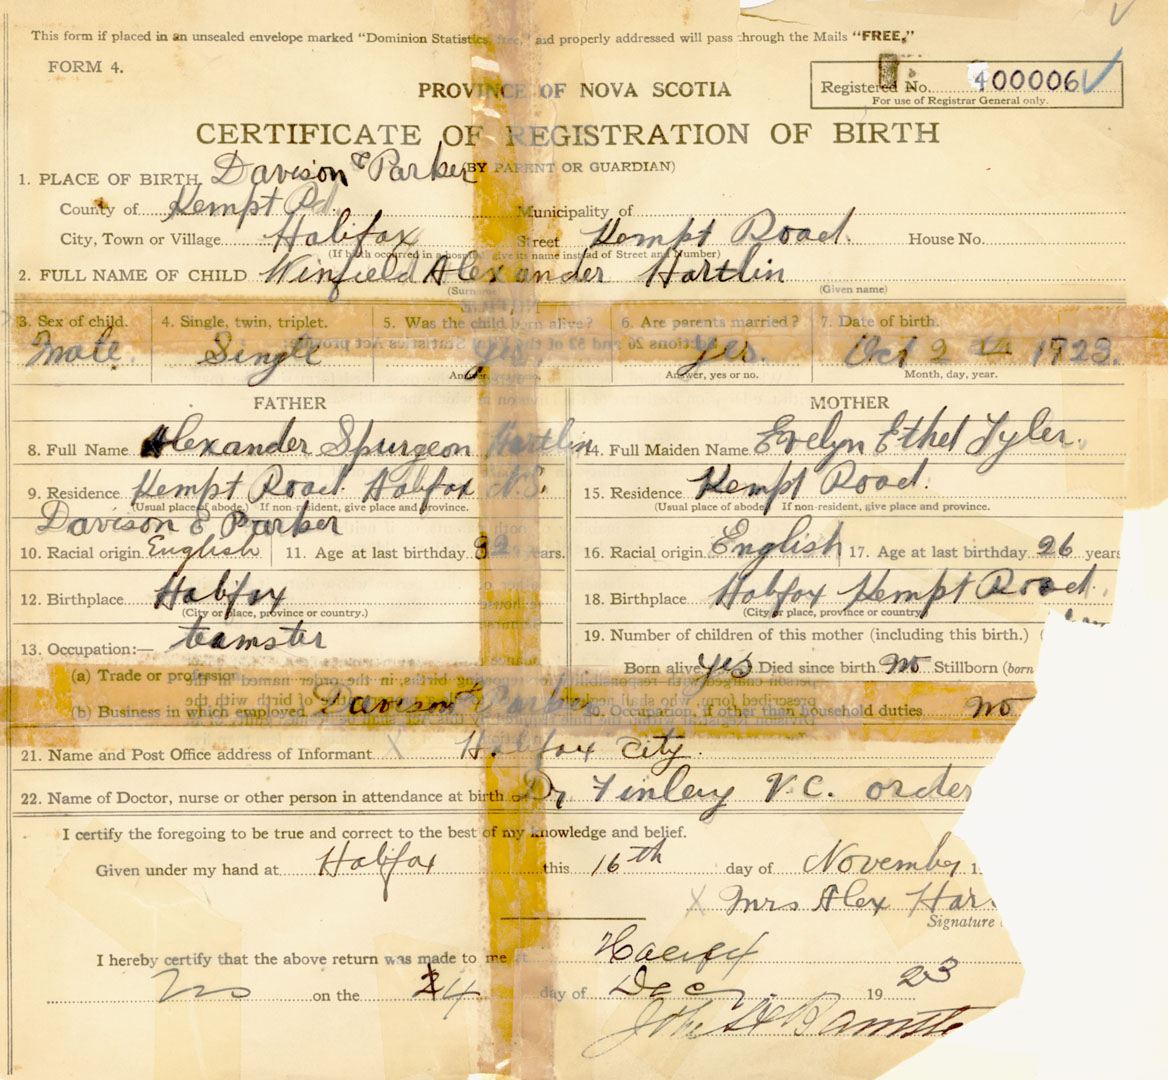 This form if placed in an unsealed envelope marked "Dominion Statistics, free," and properly addressed will pass through the Mails "FREE,"
FORM 4.
Registered No. 400006
For use of Registrar General only.
PROVINCE OF NOVA SCOTIA
CERTIFICATE OF REGISTRATION OF BIRTH
(BY PARENT OR GUARDIAN)
1. PLACE OF BIRTH Davison & Parker
County of Kempt Rd. Municipality of
City, Town or Village Halifax Street Kempt Road. House No.
(If birth occurred in a hospital give its name instead of Street and Number)
2. FULL NAME OF CHILD Winfield Alexander Hartlin
(Surname) (Given name)
3. Sex of child. 4. Single, twin, triplet. 5. Was the child born alive? 6. Are parents married? 7. Date of birth.
Male Single yes. yes. Oct 2 1923.
Answer, yes or no. Month, day, year.
FATHER MOTHER
8. Full Name Alexander Spurgeon Hartlin 14. Full Maiden Name Evelyn Ethel Tyler.
9. Residence Kempt Road. Halifax N.S. 15. Residence Kempt Road.
(Usual place of abode.) If non-resident, give place and province. (Usual place of abode) If non-resident, give place and province.
Davison & Parker
10. Racial origin English 11. Age at last birthday 32 years. 16. Racial origin English 17. Age at last birthday 26 years
12. Birthplace Halifax 18. Birthplace Halifax Kempt Road.
(City or place, province or country.) (City or place, province or country)
13. Occupation:— teamster 19. Number of children of this mother (including this birth.) (
(a) Trade or profession Born alive yes Died since birth no Stillborn (born
(b) Business in which employed Davison & Parker 20. Occupation, if other than household duties no
21. Name and Post Office address of Informant X Halifax City.
22. Name of Doctor, nurse or other person in attendance at birth Dr Finley V.C. order
I certify the foregoing to be true and correct to the best of my knowledge and belief.
Given under my hand at Halifax this 16th day of November 1
X Mrs Alex Har
Signature
I hereby certify that the above return was made to me at Halifax
on the 24 day of Dec 19 23